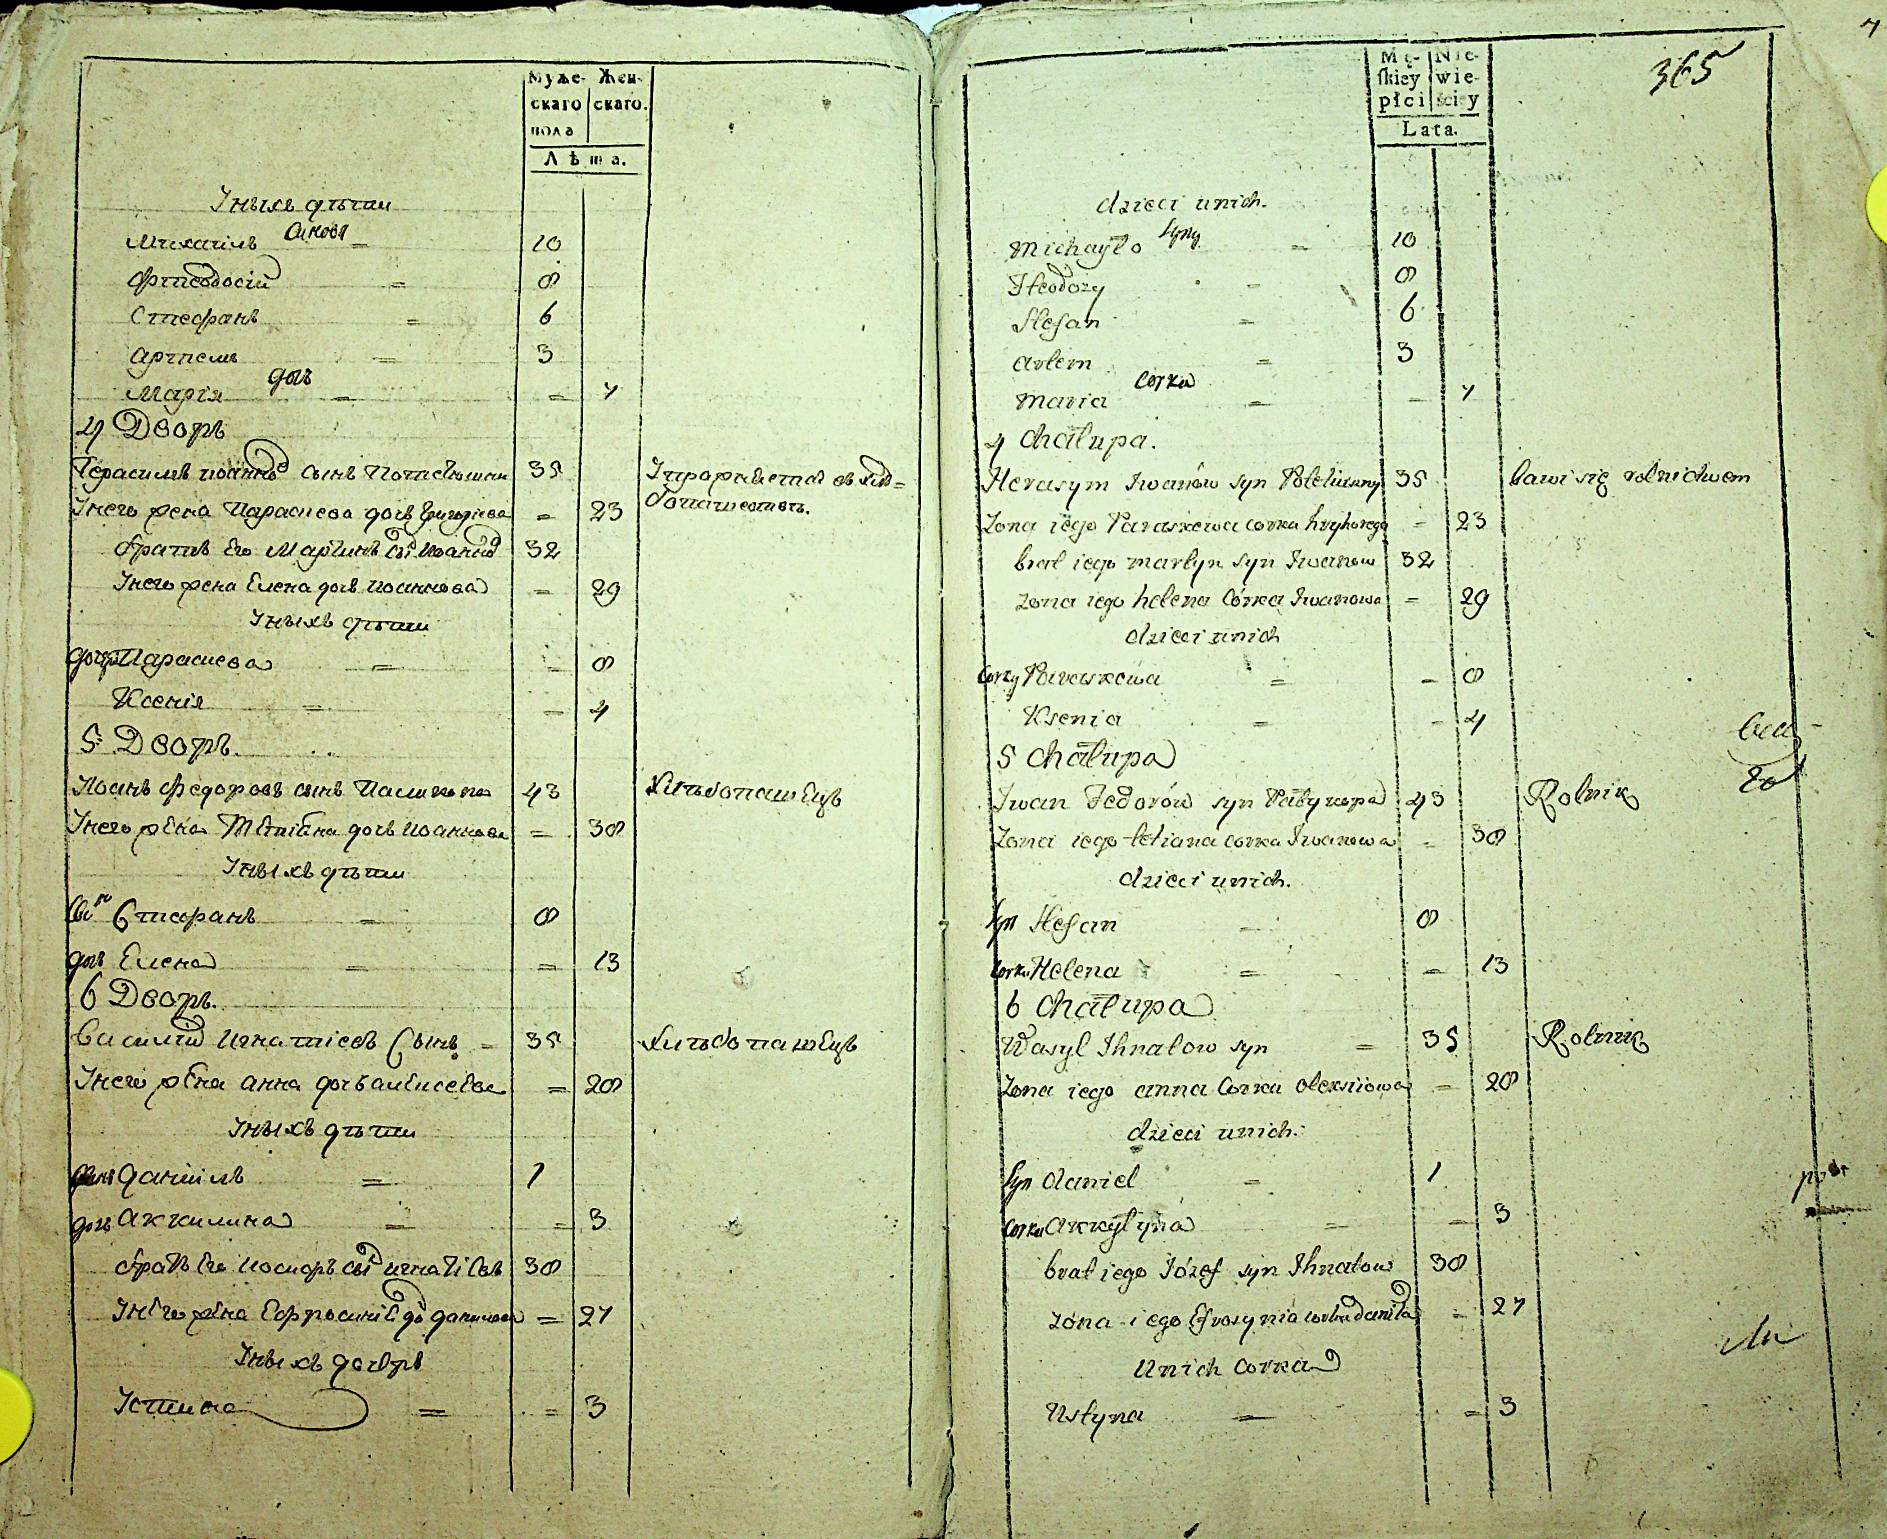 Муже- Жен-
скаго скаго.
пола
Лѣта.
У нихъ дѣти
Михаилъ Синовя = 10
Фтеодосій = 8
Стефанъ = 6
Артемъ = 3
Марія дочь = - 7
4 Дворъ
Герасимъ Іоанновъ сынъ 35
У него жена Парасцева дочь Григорієва = 23
братъ Его Мартинъ Іоанновъ 32
У него жена Елена дочь Иоаннова = 29
У нихъ дѣти
Парасцева = - 8
Ксенія = - 4
5 Дворъ.
Иоанъ Федоровъ синъ 43 Хлѣбопашецъ
У него жена Тетіана дочь Иоаннова = 38
У нихъ дѣти
Стефанъ = 8
дочь Елена = = 13
6 Дворъ.
Василій Игнатіевъ Сынъ = 35 Хлѣбопашецъ
У него жена Анна дочь Алексеева = 28
У нихъ дѣти
Синъ Даніилъ = 1
дочь Аккилина = = 3
братъ Его Иосифъ Игнатіевъ 38
У него жена Ефросинія Данилова = 27
У нихъ дочерь
Устина = = 3
7
365
Mę- Nie-
skiey wie-
płci ściey
Lata.
dzieci unich.
Michayło syny = 10
Fteodozy = 8
Stefan = 6
Artem = 3
Maria Corka = - 7
4 Chałupa.
Herasym Iwanów syn 35 bawi się rolnictwem
Zona iego Paraskewa corka hryhorego = 23
brat iego martyn syn Iwanow 32
zona iego helena Córka Iwanowa = 29
dzieci unich
Corky Paraskewa = - 8
Ksenia = - 4
5 Chałupa
Iwan Fedorów syn 43 Rolnik
Zona iego tetiana corka Iwanowa = 38
dzieci unich.
Syn Stefan = 8
Corka Helena = - 13
6 Chałupa
Wasyl Ihnatow syn = 35 Rolnik
Zona iego anna Corka olexiiowa = 28
dzieci unich.
Syn daniel = 1
Corka akkylyna = - 3
brat iego Józef syn Ihnatow 38
zona iego Efrosynia corka daniła = 27
Unich Corka
Ustyna = = 3